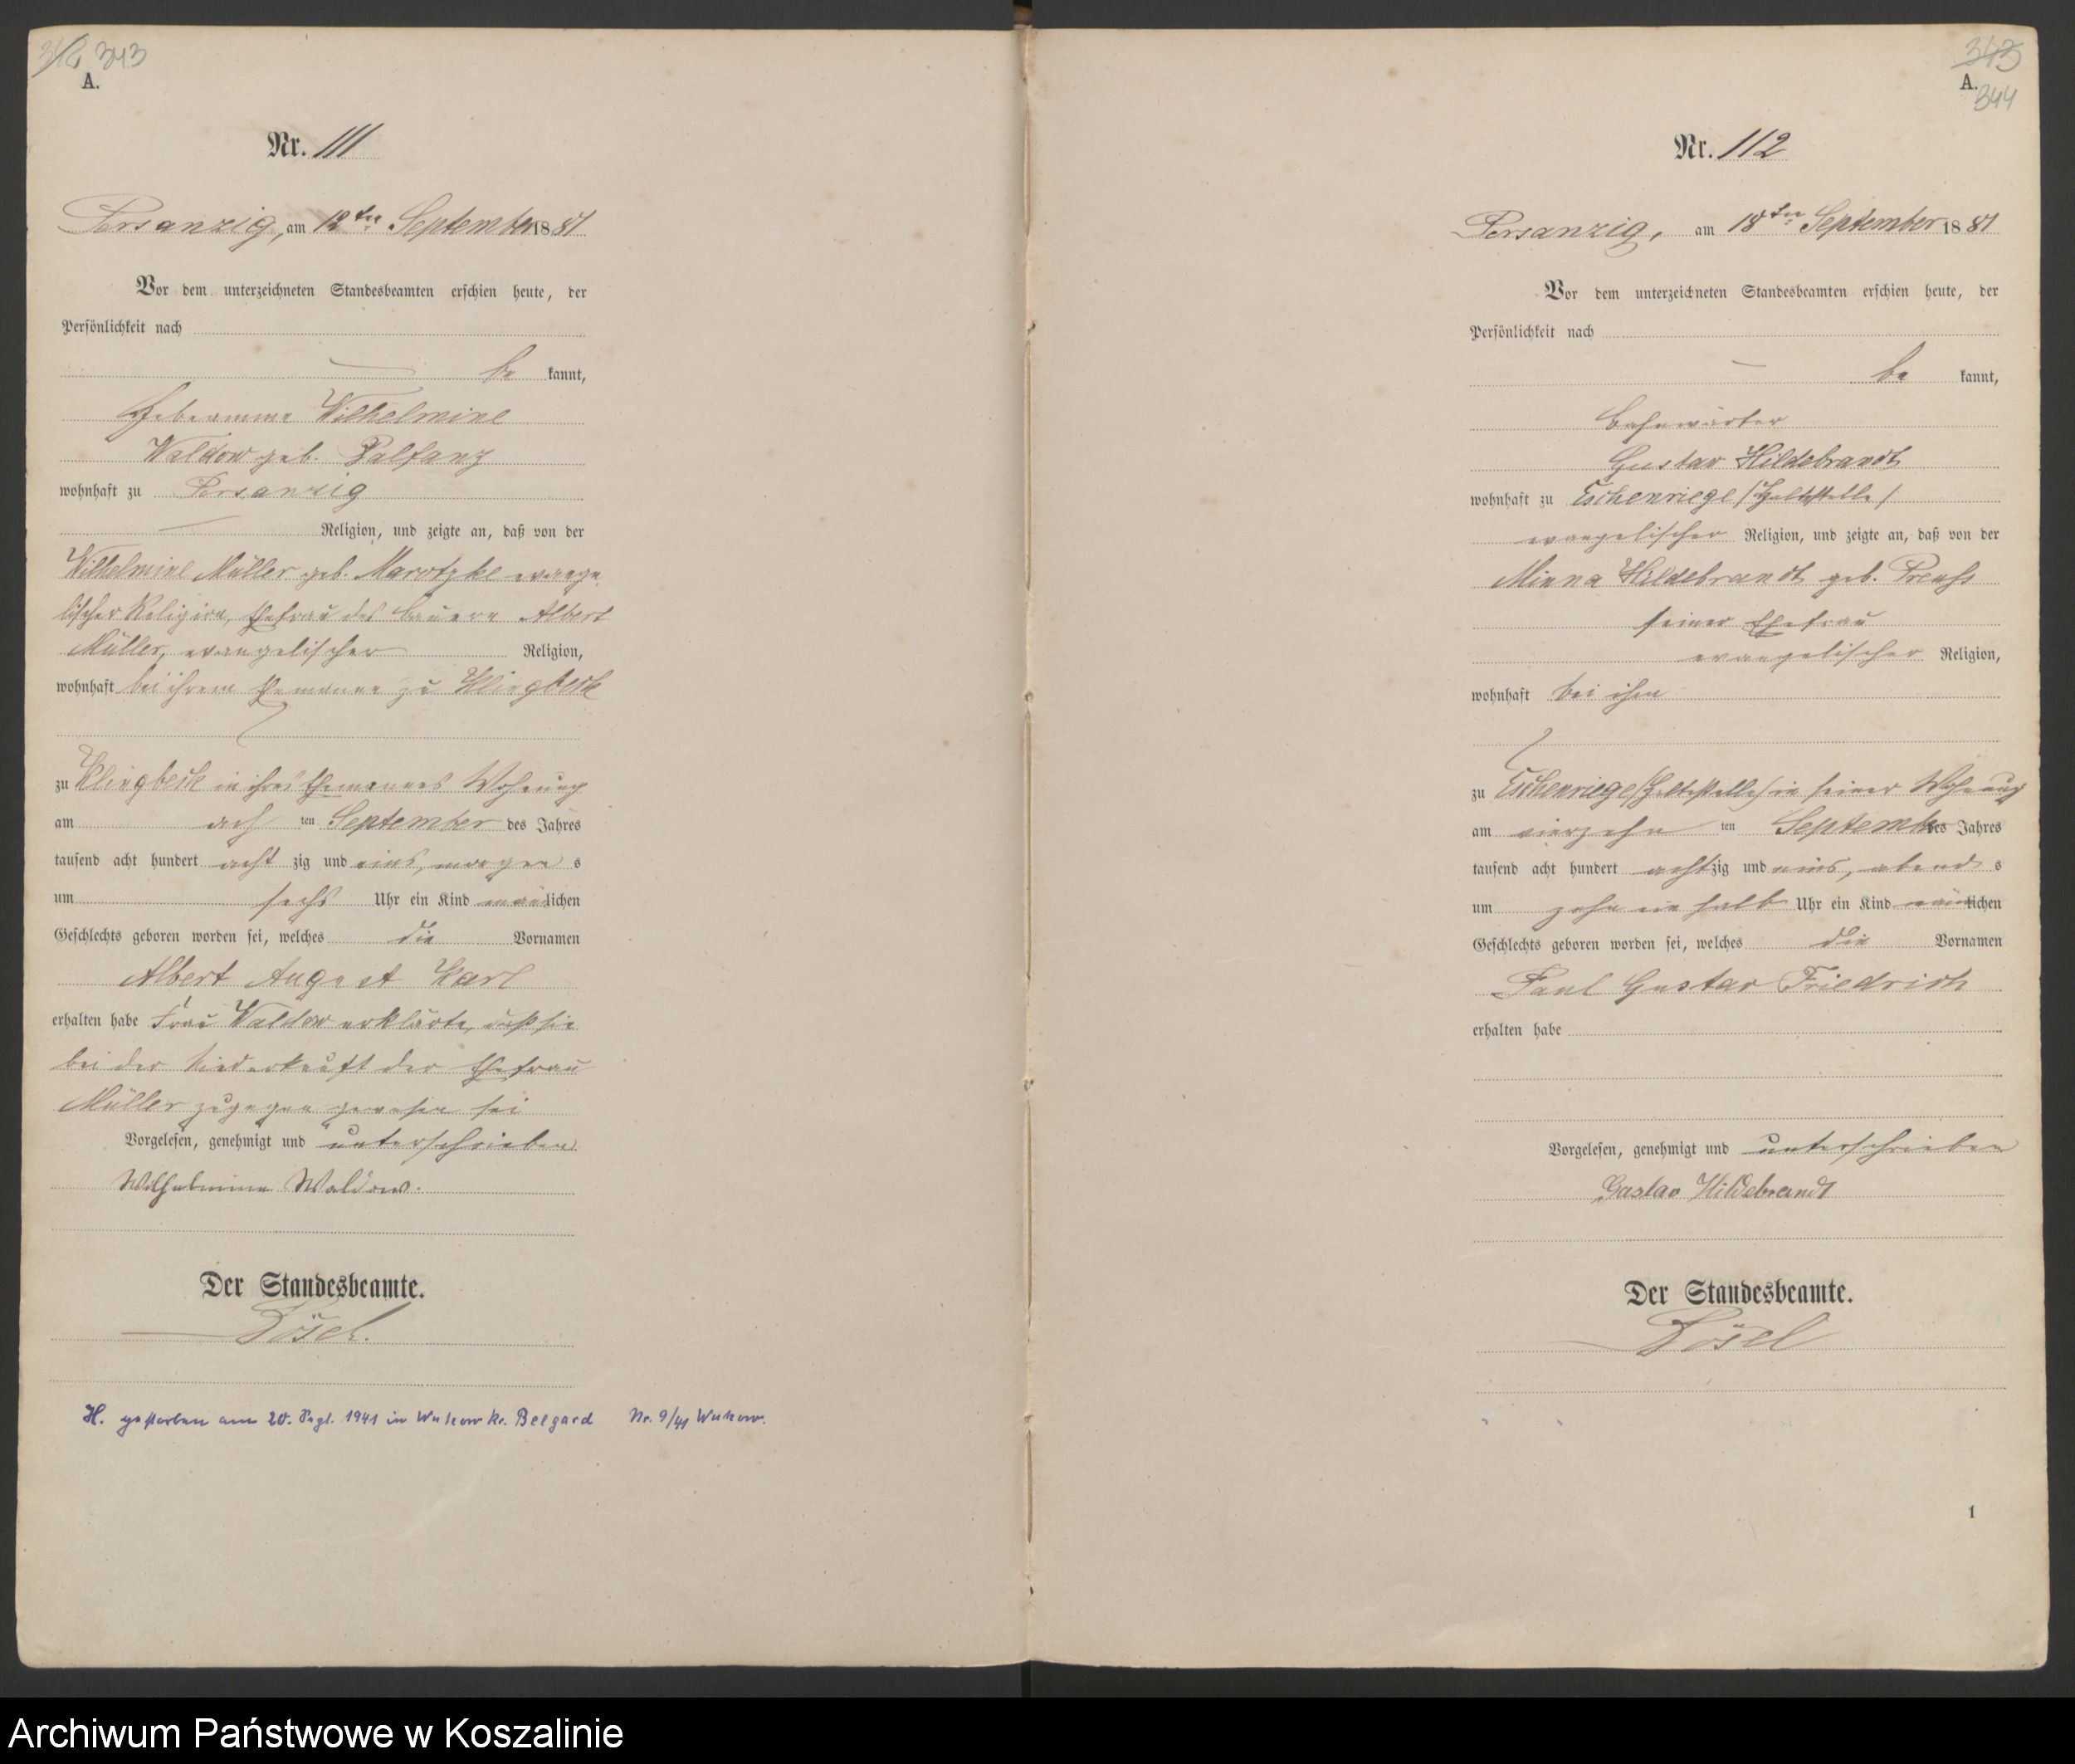 343
A.
Nr. 111
Persanzig, am 12ten September 1881
Vor dem unterzeichneten Standesbeamten erschien heute, der
Persönlichkeit nach
be kannt,
Hebeamme Wilhelmine
Waldow geb. Palfanz
wohnhaft zu Persanzig
Religion, und zeigte an, daß von der
Wilhelmine Müller geb. Marotzke evange
lischer Religion, Ehefrau des Bauern Albert
Müller, evangelischer Religion,
wohnhaft bei ihrem Ehemanne zu Klingbeck
zu Klingbeck in ihres Ehemannes Wohnung
am ach ten September des Jahres
tausend acht hundert acht zig und eins, morgen s
um sechs Uhr ein Kind männlichen
Geschlechts geboren worden sei, welches die Vornamen
Albert August Karl
erhalten habe Frau Waldow erklärte, daß sie
bei der Niederkunft der Ehefrau
Müller zugegen gewesen sei
Vorgelesen, genehmigt und unterschrieben
Wilhelmine Waldow.
Der Standesbeamte.
Rösel.
H. gestorben am 20. 1941 in Kr. Belgard Nr. 9/41
343
A.
344
Nr. 112
Persanzig, am 18ten September 1881
Vor dem unterzeichneten Standesbeamten erschien heute, der
Persönlichkeit nach
be kannt,
Bahnwärter
Gustav Hildebrandt
wohnhaft zu Eschenriege /Haltestelle/
evangelischer Religion, und zeigte an, daß von der
Minna Hildebrandt geb. Preuß
seiner Ehefrau
evangelischer Religion,
wohnhaft bei ihm
zu Eschenriege /Haltestelle/ in seiner Wohnung
am vierzehn ten September des Jahres
tausend acht hundert achtzig und eins, abend s
um zehn ein halb Uhr ein Kind männlichen
Geschlechts geboren worden sei, welches die Vornamen
Paul Gustav Friedrich
erhalten habe
Vorgelesen, genehmigt und unterschrieben
Gustav Hildebrandt
Der Standesbeamte.
Rösel
1
Archiwum Państwowe w Koszalinie